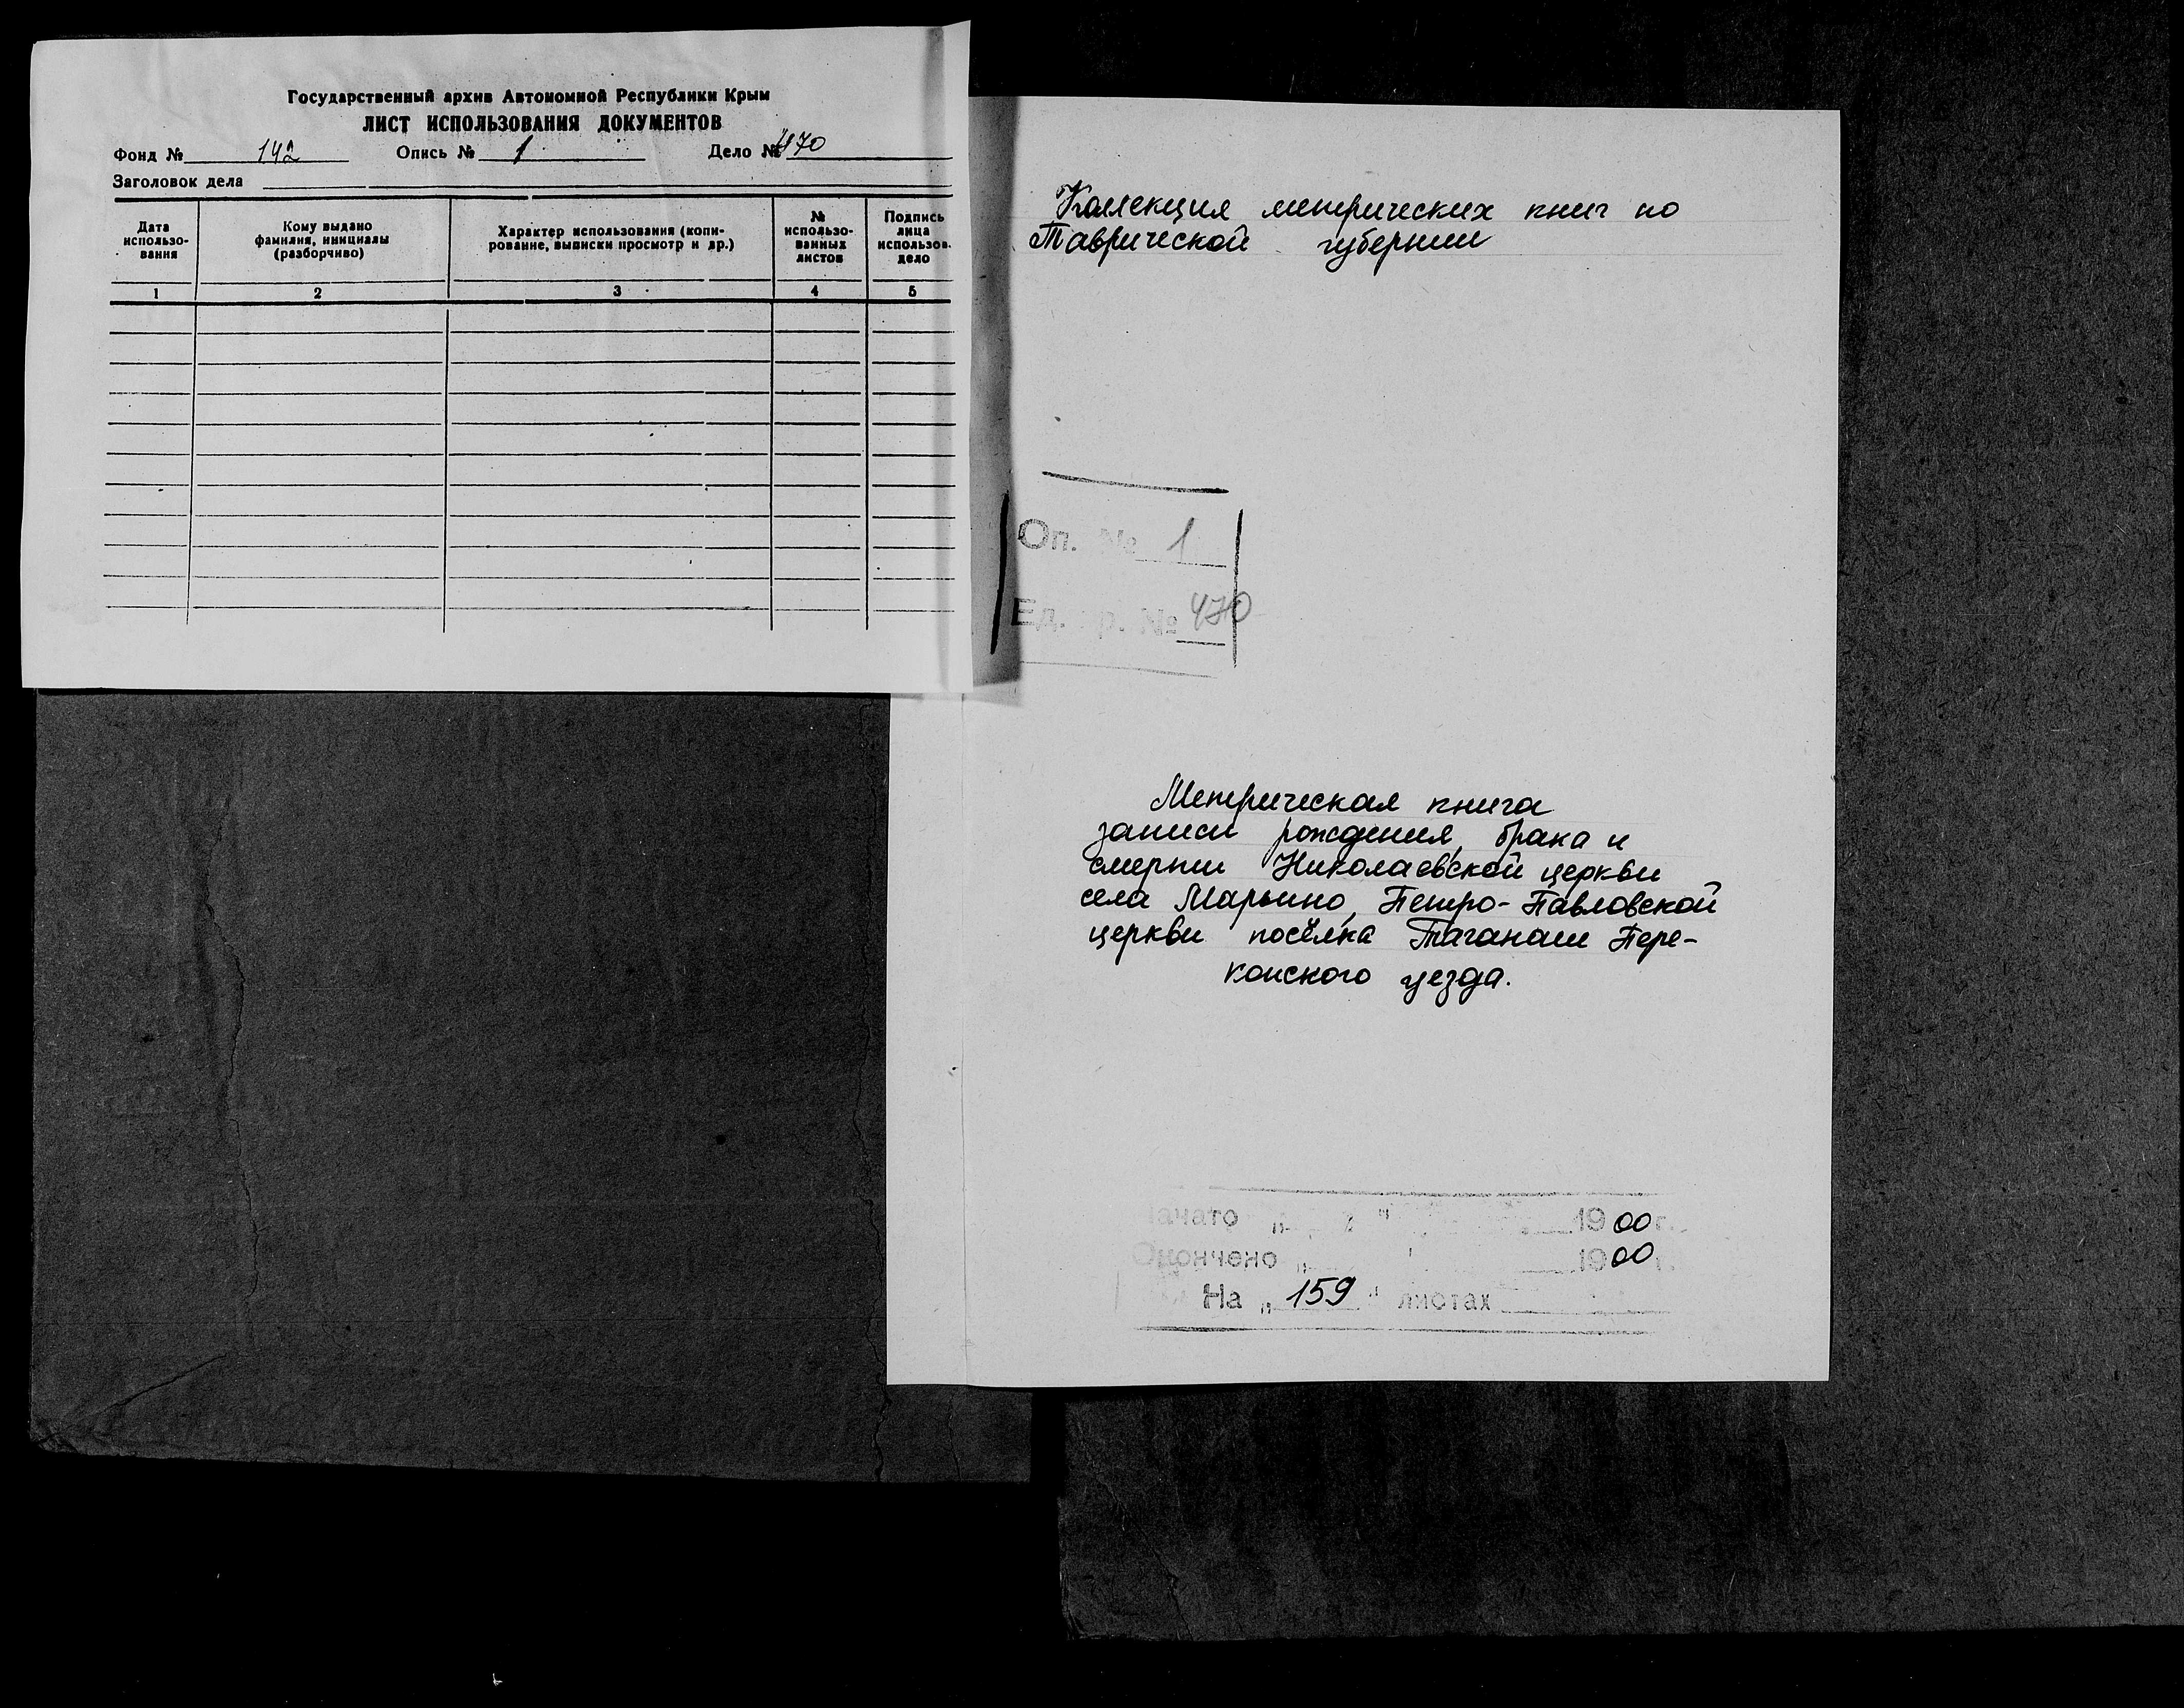 Государственный архив Автономной Республики Крым
ЛИСТ ИСПОЛЬЗОВАНИЯ ДОКУМЕНТОВ
Фонд № 142 Опись № 1 Дело № 470
Заголовок дела
Дата использо-вания
Кому выдано фамилия, инициалы (разборчиво)
Характер использования (копи-рование, выписки просмотр и др.)
№ использо-ванных листов
Подпись лица использов. дело
1 2 3 4 5
Коллекция метрических книг по
Таврической губернии
Оп. № 1
Ед. р. № 470
Метрическая книга
записи рождения, брака и
смерти Николаевской церкви
села Марьино, Петро-Павловской
церкви посёлка Таганаш Пере-
копского уезда.
Начато „ " 1900 г.
Окончено „ 1900 г.
На „ 159 " листах